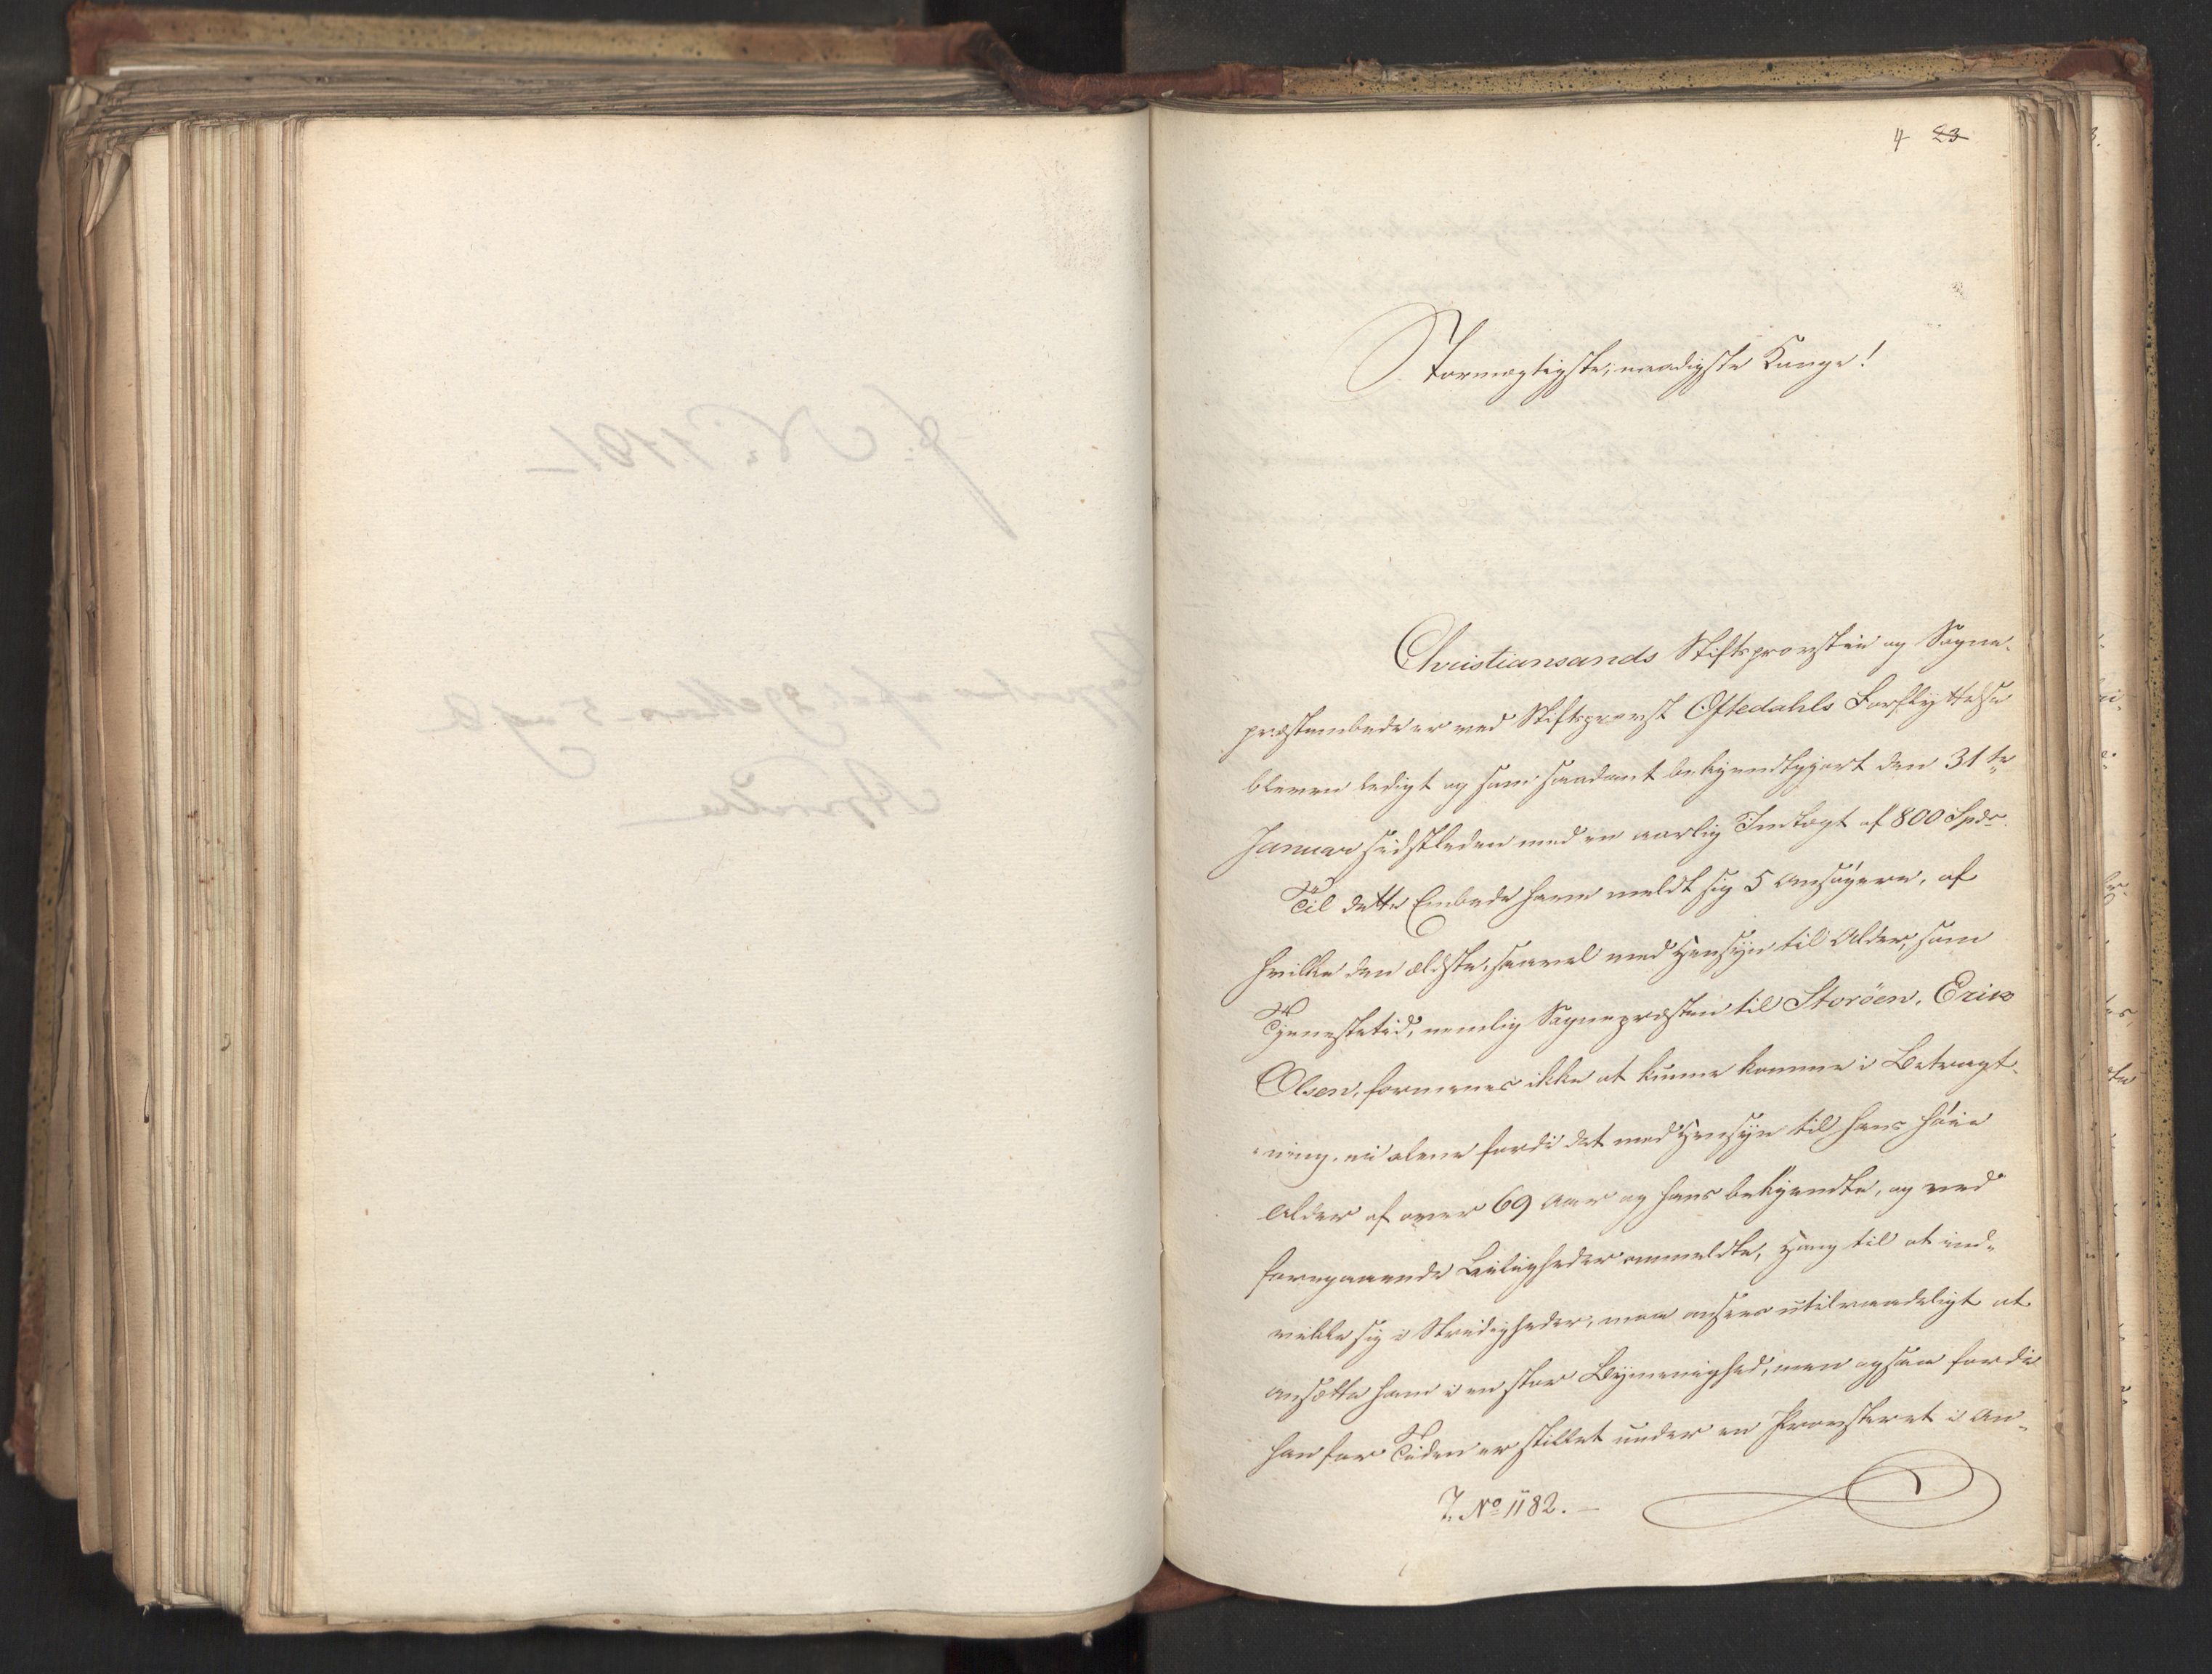 4 23
Stormægtigste, naadigste Konge!
Christiansands Stiftsprovstie og Sogne-
præstembede er ved Stiftsprovst Oftedahls Forflyttelse
bleven ledigt og som saadant bekjendtgjort den 31te
Januar sidstleden med en aarlig Indtægt af 800 Spdr.
Til dette Embede have meldt sig 5 Ansøgere, af
hvilke den ældste, saavel med Hensyn til Alder, som
Tjenestetid, nemlig Sognepræsten til Storöen, Erik
Olsen, formenes ikke at kunne komme i Betragt-
ning, ei alene fordi det med Hensyn til hans høie
Alder af over 69 Aar og hans bekjendte, og ved
foregaaende Leiligheder ommeldte, Hang til at ind-
vikle sig i Stridigheder, maa ansees utilraadeligt at
ansætte ham i en stor Bymenighed, men ogsaa fordi
han for Tiden er stillet under en Provsteret i An-
J. No 1182. —